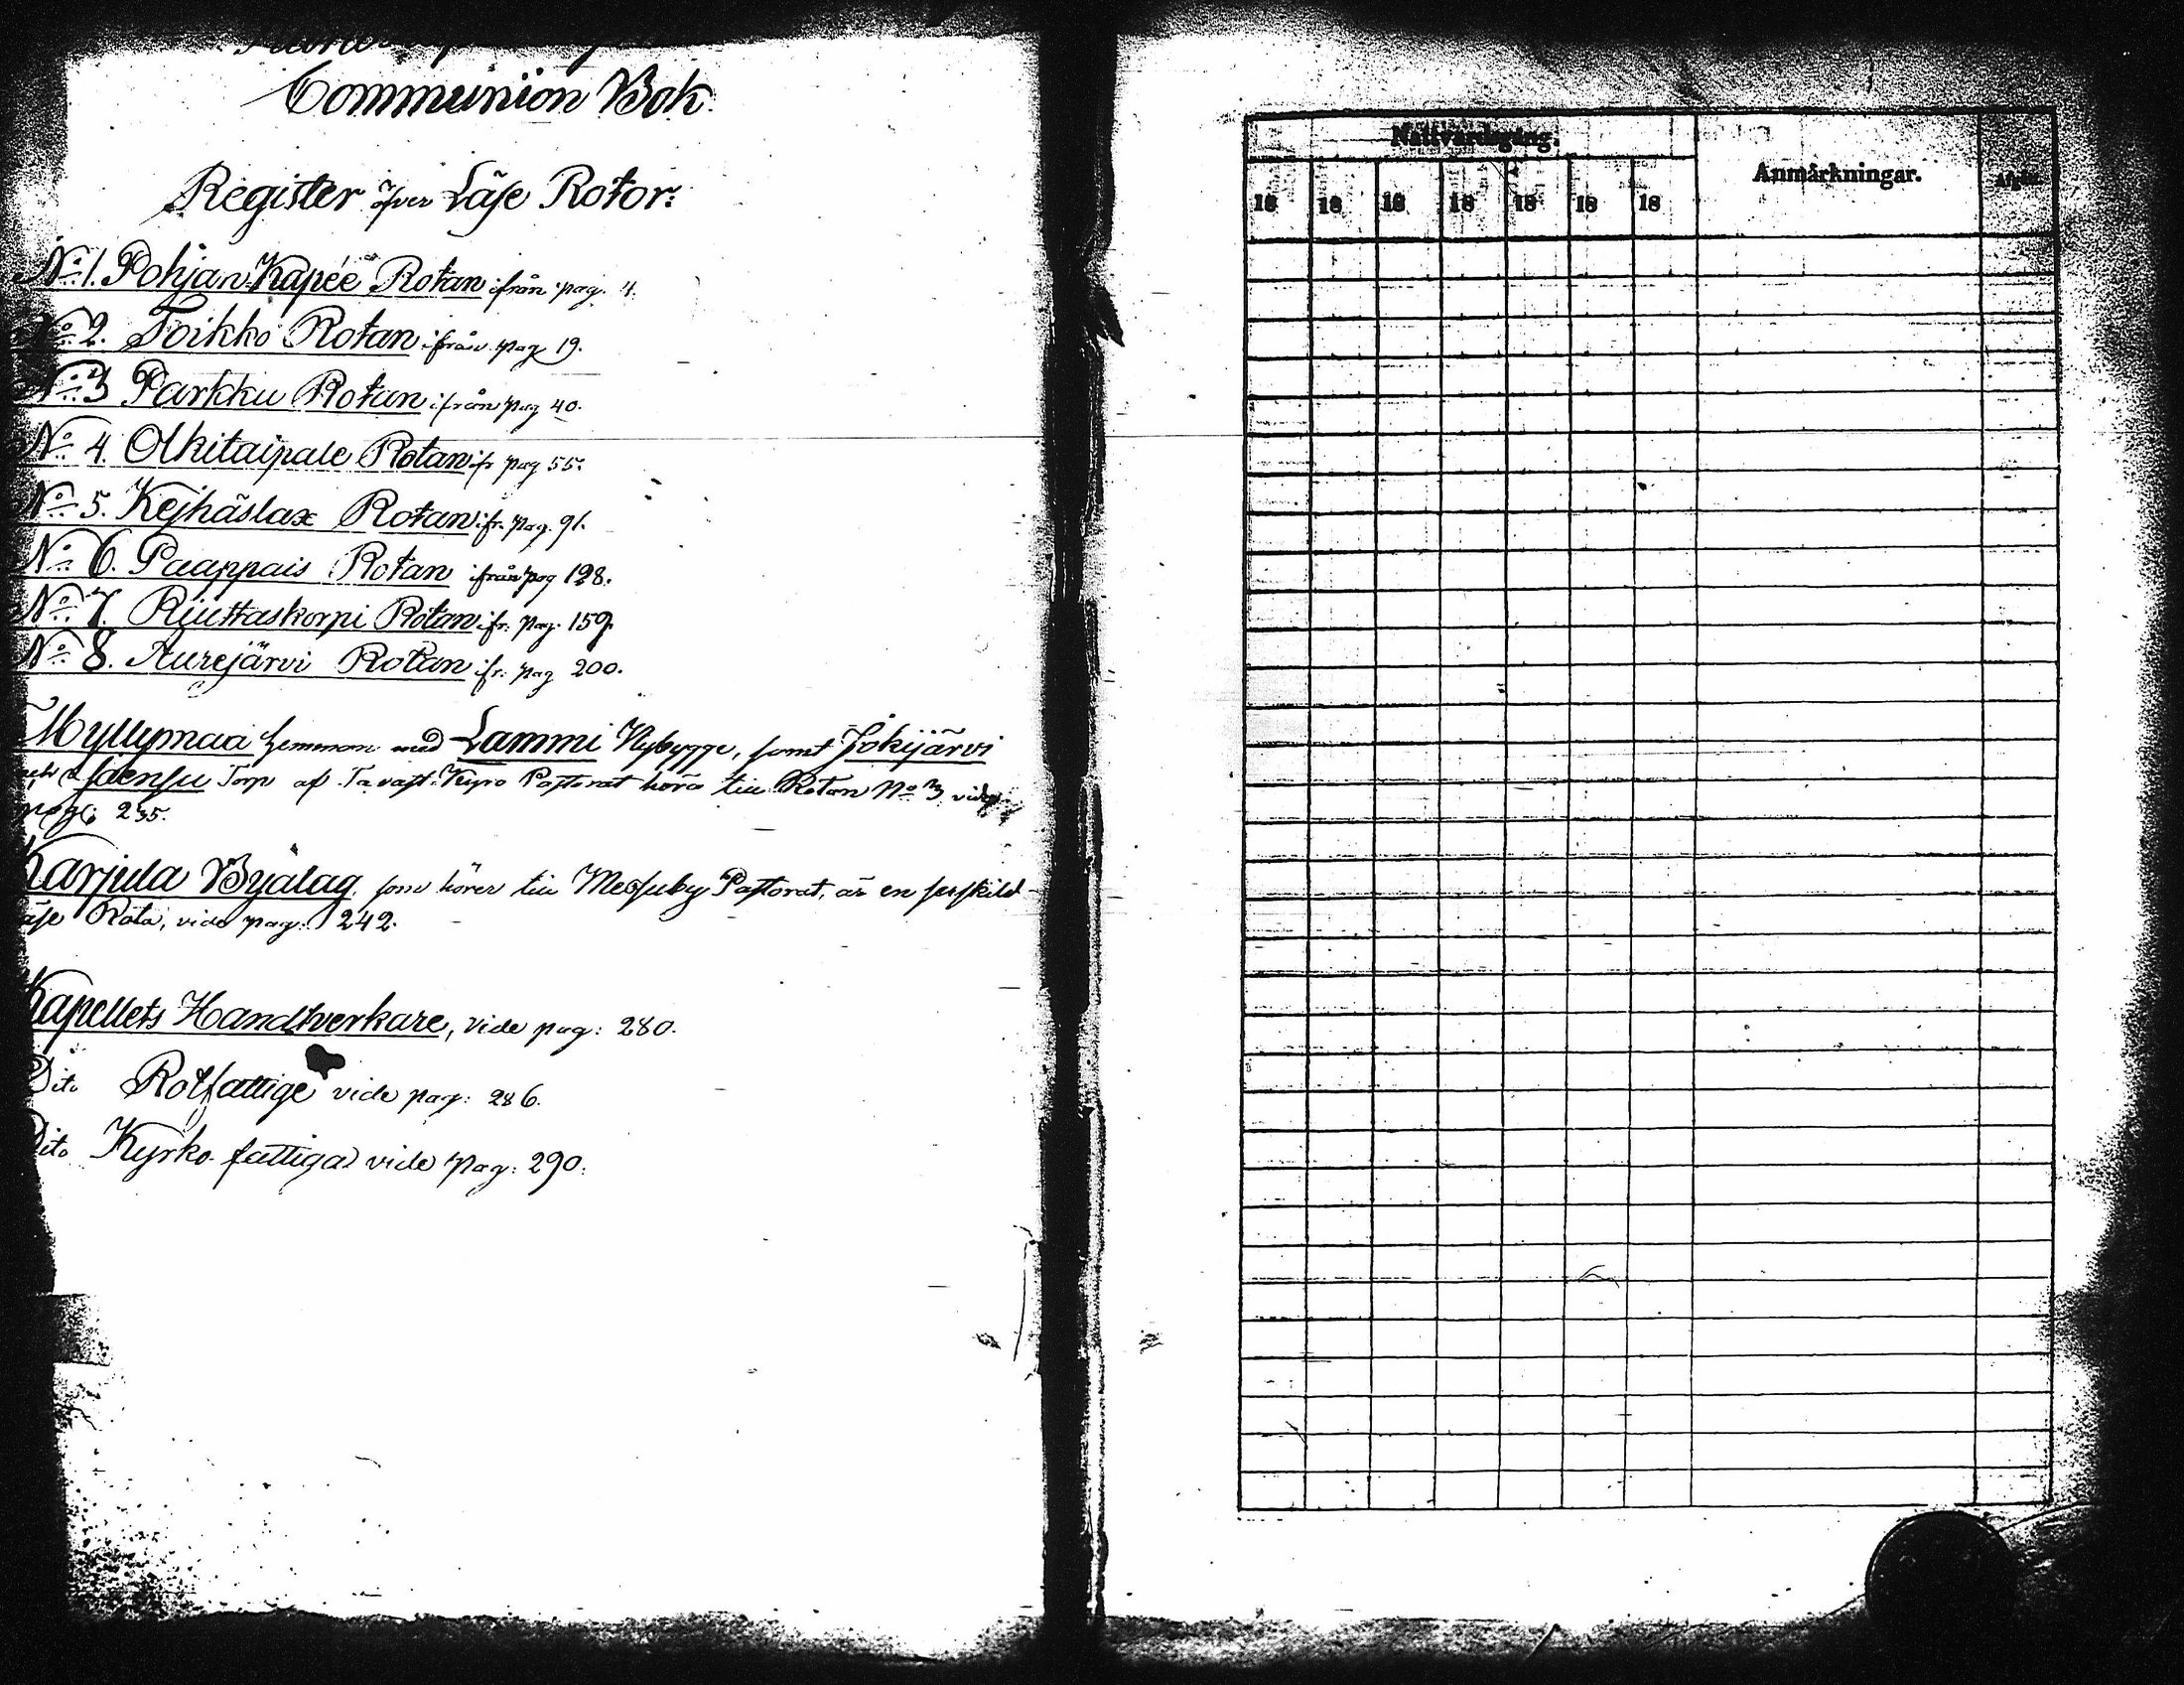 Communion Bok
Register öfver Läse Rotor:
No 1. Pohjan-Kapée Rotan ifrån pag. 4.
No 2. Toikko Rotan ifrån pag 19.
No 3 Parkku Rotan ifrån pag 40.
No 4. Olkitaipale Rotan ifr pag 55.
No 5. Kejhäslax Rotan ifr. pag. 91.
No 6. Paappais Rotan ifrån pag 128.
No 7. Riuttaskorpi Rotan ifr. pag. 159.
No 8. Aurejärvi Rotan ifr. pag 200.
Myllymaa hemman med Lammi Nybygge, samt Jokijärvi
Torp af Tavast-Kyro Pastorat höra till Rotan No 3, vide
pag: 235.
Karjula Byalag, som hörer till Messuby Pastorat, är en serskild
Läse Rota, vide pag: 242.
Kapellets Handtverkare, vide pag: 280.
Dito Rotfattige vide pag: 286.
Dito Kyrko-fattiga vide pag: 290.
Nattvardsgång.
Anmärkningar.
18 18 18 18 18 18 18